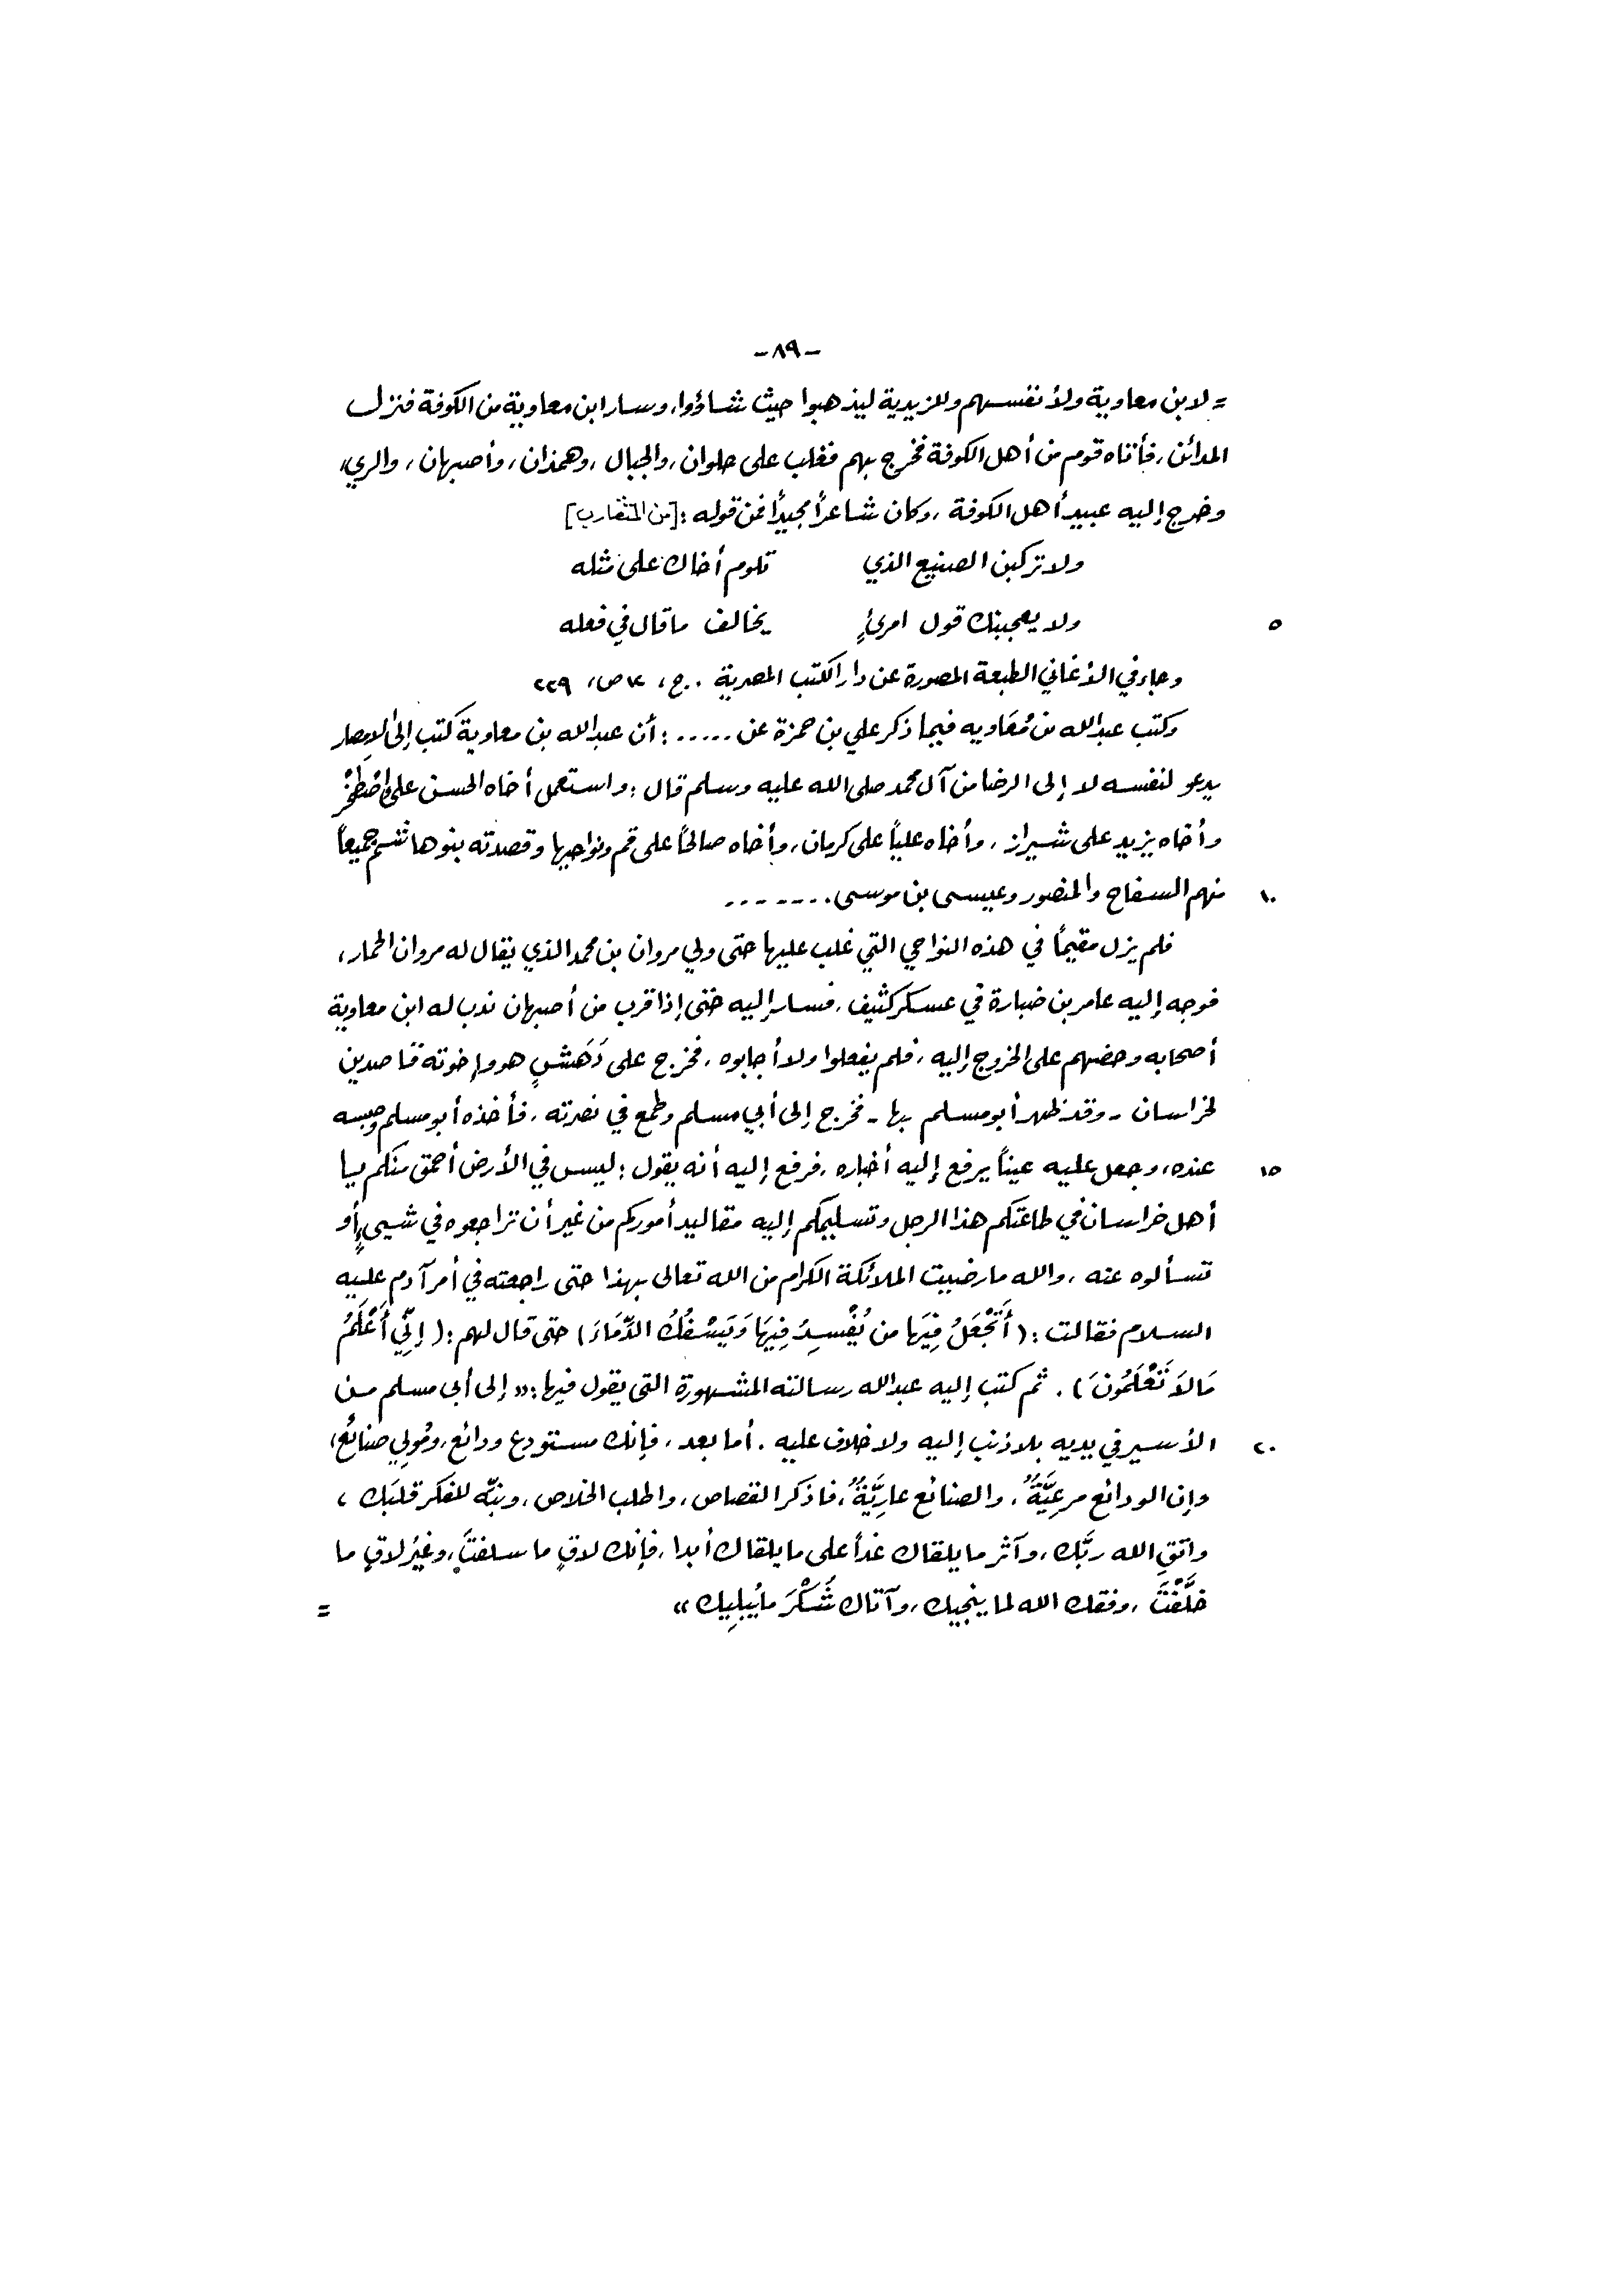 -٨٩-
= لابن معاوية ولأنفسهم وللزيدية ليذهبوا حيث شاؤوا، وسار ابن معاوية من الكوفة فنزل
المدائن، فأتاه قوم من أهل الكوفة فخرج بهم فغلب على حلوان، والجبال، وهمذان، وأصبهان، والري،
وخرج إليه عبيد أهل الكوفة، وكان شاعراً مجيداً فمن قوله: [من المتقارب]
ولا تركبن الصنيع الذي تلوم أخاك على مثله
٥ ولا يعجبنك قول امرئٍ يخالف ما قال في فعله
وجاء في الأغاني الطبعة المصورة عن دار الكتب المصرية. ج، ١٢ ص، ٢٢٩
وكتب عبدالله بن مُعَاويه فيما ذكر علي بن حمزة عن .....: أن عبدالله بن معاوية كتب إلى الأمصار
يدعو لنفسه لا إلى الرضا من آل محمد صلى الله عليه وسلم قال: واستعمل أخاه الحسن على إصْطَخْر
وأخاه يزيد على شيراز، وأخاه علياً على كرمان، وأخاه صالحاً على قم ونواحيها وقصدته بنو هاشم جميعاً
١٠ منهم السفاح والمنصور وعيسى بن موسى.......
فلم يزل مقيماً في هذه النواحي التي غلب عليها حتى ولي مروان بن محمد الذي يقال له مروان الحمار،
فوجه إليه عامر بن ضبارة في عسكر كثيف، فسار إليه حتى إذا قرب من أصبهان ندب له ابن معاوية
أصحابه وحضهم على الخروج إليه، فلم يفعلوا ولا أجابوه، فخرج على دَهَشٍ هو وإخوته قاصدين
لخراسان - وقد ظهر أبو مسلم بها - فخرج إلى أبي مسلم وطمع في نصرته، فأخذه أبو مسلم وحبسه
١٥ عنده، وجعل عليه عيناً يرفع إليه أخباره، فرفع إليه أنه يقول: ليس في الأرض أحمق منكم يا
أهل خراسان في طاعتكم هذا الرجل وتسليمكم إليه مقاليد أموركم من غير أن تراجعوه في شيىءٍ أو
تسألوه عنه، والله ما رضيت الملائكة الكرام من الله تعالى بهذا حتى راجعته في أمر آدم عليه
السلام فقالت: (أَتَجْعَلُ فِيَها من يُفْسِدُ فِيهَا وَيَسْفُكُ الدِّمَاءَ) حتى قال لهم: (إِنِّي أَعْلَمُ
مَا لاَ تَعْلَمُونَ). ثم كتب إليه عبدالله رسالته المشهورة التي يقول فيها: «إلى أبي مسلم من
٢٠ الأسير في يديه بلا ذنب إليه ولا خلاف عليه. أما بعد، فإنك مستودع ودائع، ومُولِي صنائع،
وإن الودائع مرعِيَّةٌ، والصنائع عارِيَّةٌ، فاذكر القصاص، واطلب الخلاص، ونبّه للفكر قلبَك،
واتقِ الله ربَّك، وآثر ما يلقاك غداً على ما يلقاك أبدا، فإنك لاقٍ ما سلفتَ، وغيرُ لاقٍ ما
خلَّفْتَ، وفقك الله لما ينجيك، وآتاك شُكْرَ ما يُبلِيك» =